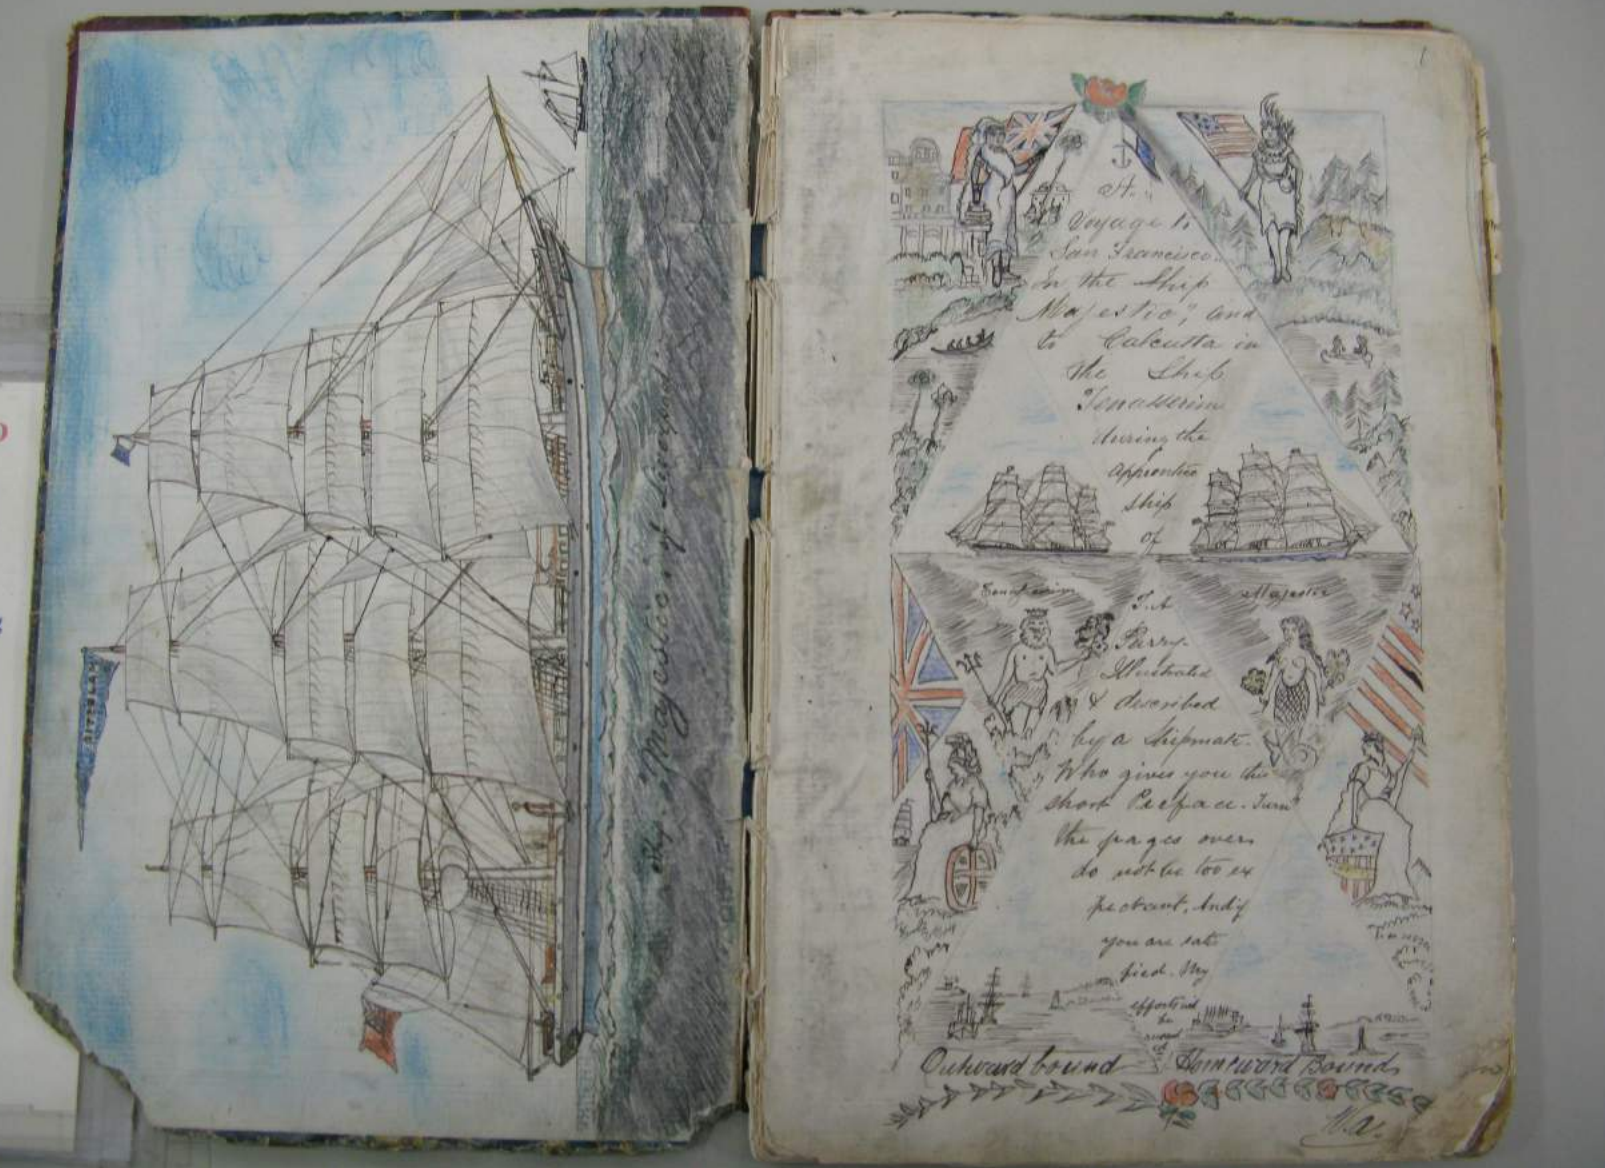 Ship "Majestic" of Liverpool.
MAJESTIC
1
A
Voyage to
San Francisco.
In the Ship
Majestic", and
to Calcutta in
the Ship
Tenasserim
during the
apprentice
ship
of
Tenasserim
Majestic
T.A
Parry.
Illustrated
& described
by a Shipmate.
Who gives you this
short Preface. Turn
the pages over
do not be too ex
pectant, And if
you are satis
fied. My
efforts will
be
Outward bound
Homeward Bound
W.A.